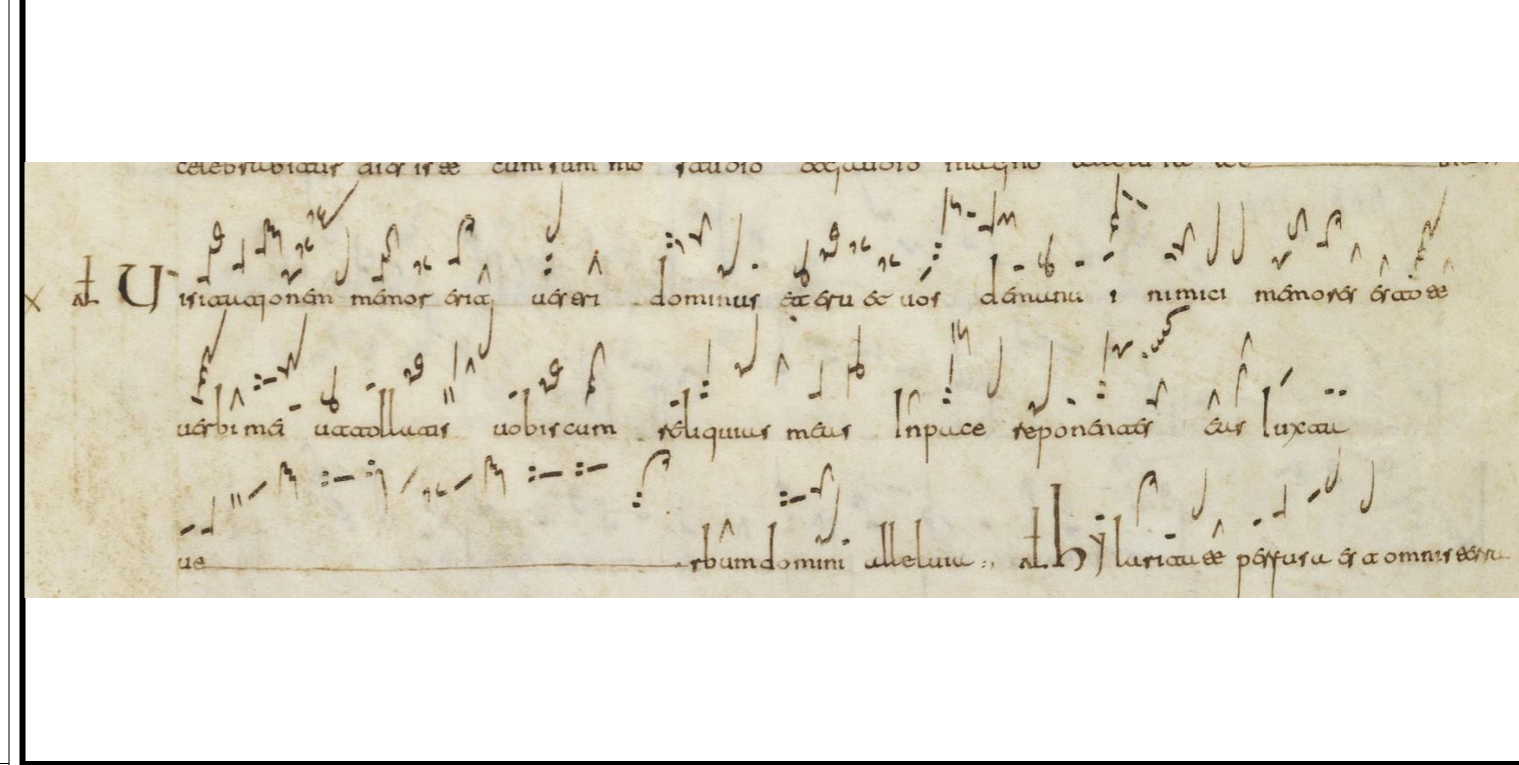 celebrabitur dies iste cum summo gaudio magno
Uisitationem memor erit uestri dominus et eruet uos de manu inimici memores estote
uerbi mei ut tollatis uobiscum reliquias meas In pace reponentes eas iuxta
ue rbum domini alleluia hylaritate perfusa est omnis terra